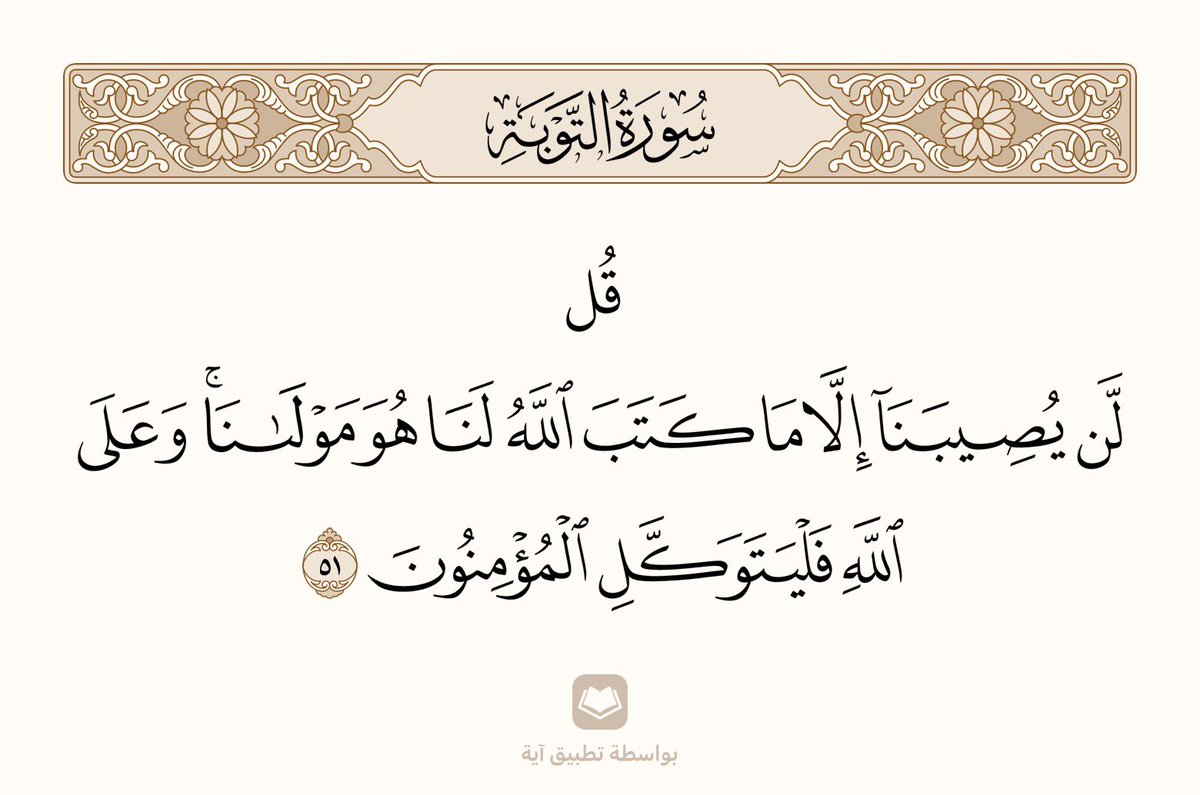 سُورَةُ التَّوْبَةِ
قُل
لَّن يُصِيبَنَآ إِلَّا مَا كَتَبَ ٱللَّهُ لَنَا هُوَ مَوْلَىٰنَاۚ وَعَلَى
ٱللَّهِ فَلْيَتَوَكَّلِ ٱلْمُؤْمِنُونَ ٥١
بواسطة تطبيق آية